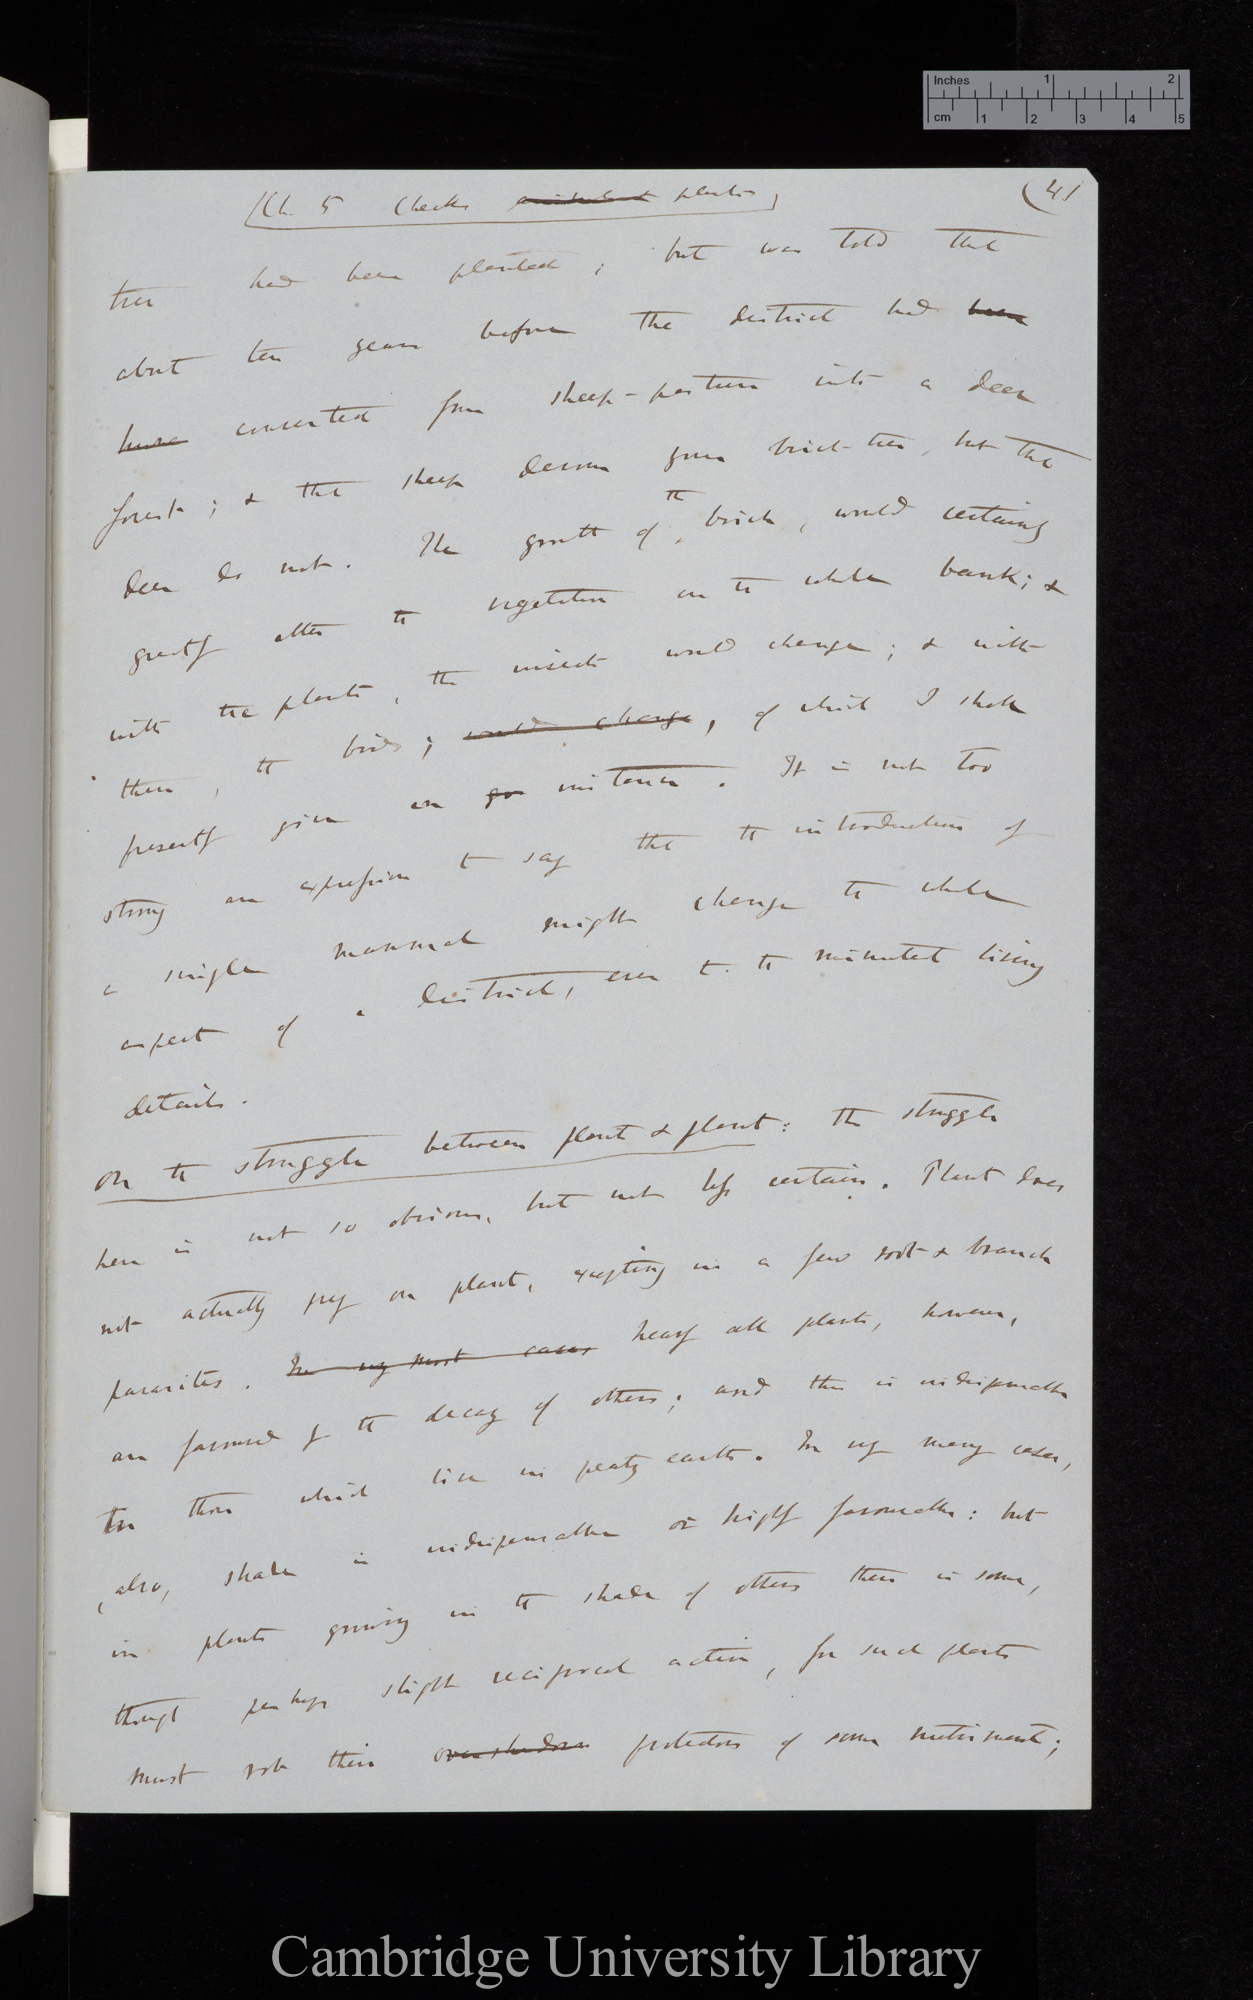 Inches 1 2
cm 1 2 3 4 5
(Ch 5 Checks plants)
(41
tree had been planted; but was told that
about ten years before the district had been
have converted from sheep-pasture into a deer
forest; & the sheep devour young birch-trees, but the
deer do not. The growth of the birch, would certainly
greatly alter the vegetation on the whole bank; &
with the plants, the insects would change; & with
them, the birds; would change, of which I shall
presently give an instance. It is not too
strong an expression to say that the introduction of
a single mammal might change the whole
aspect of a district, even to the minutest living
details.
On the struggle between plant & plant: the struggle
here is not so obvious, but not less certain. Plant does
not actually prey on plant, excepting in a few root & branch
parasites. In my most cases Nearly all plants, however,
are favoured by the decay of others; and this is indispensable
to those which live in peaty earth. In very many cases,
also, shade is indispensable or highly favourable: but
in plants growing in the shade of others there is some,
though perhaps slight reciprocal action, for such plants
must rob their overshadow protectors of some nutriment;
Cambridge University Library